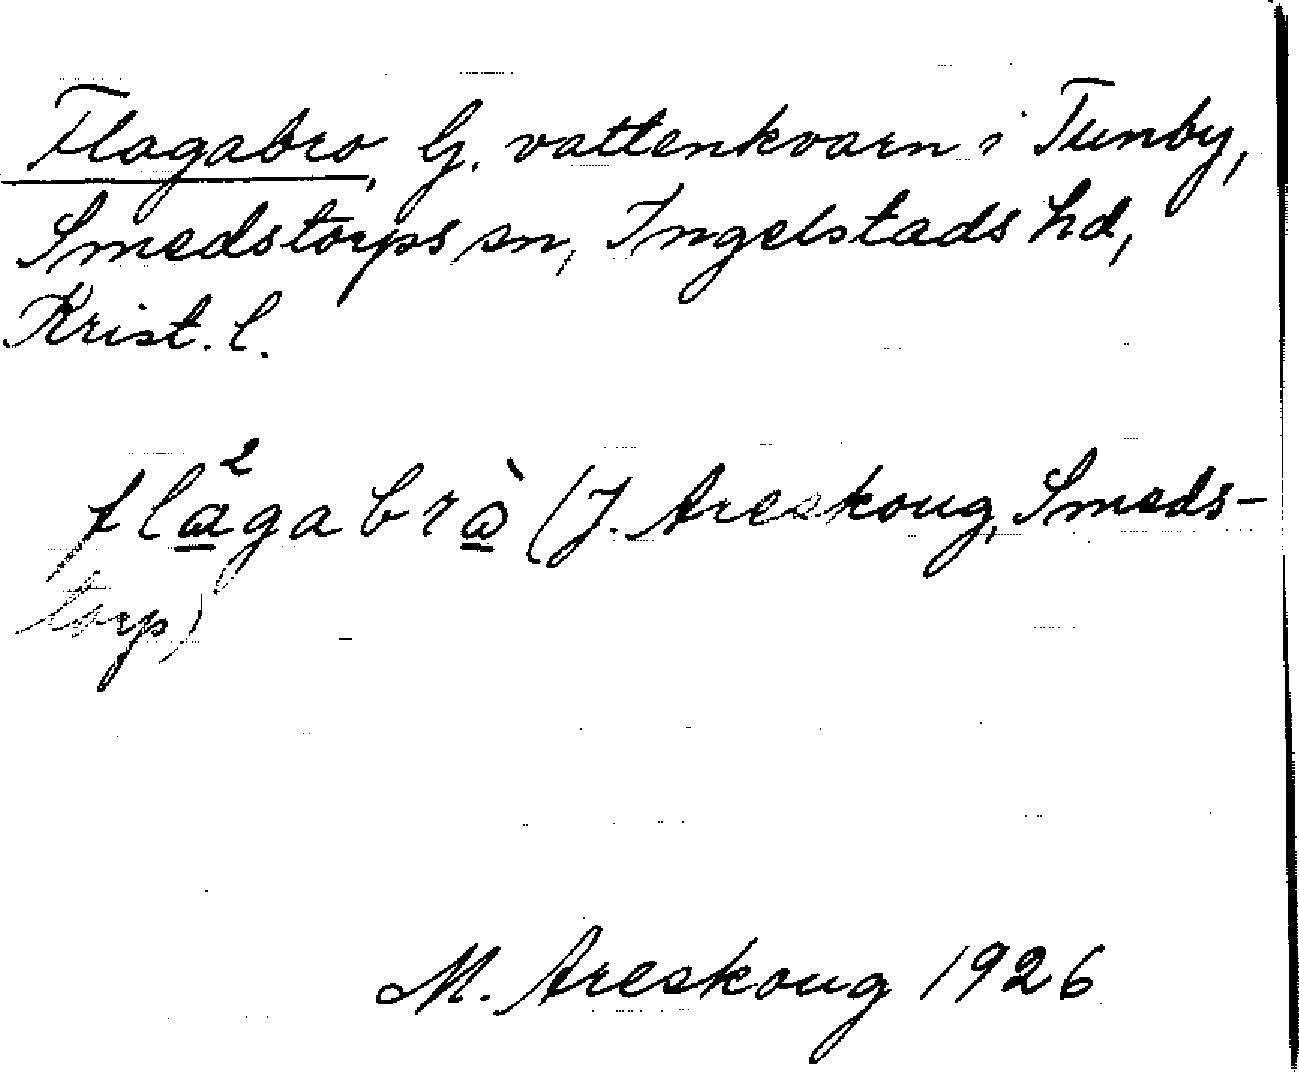 Flagabro, G. vattenkvarn i Tunby,
Smedstorps sn, Ingelstads hd,
Krist. l.
fla̲²gabrà̲ (J. Areskoug, Smeds-
torp)
M. Areskoug 1926